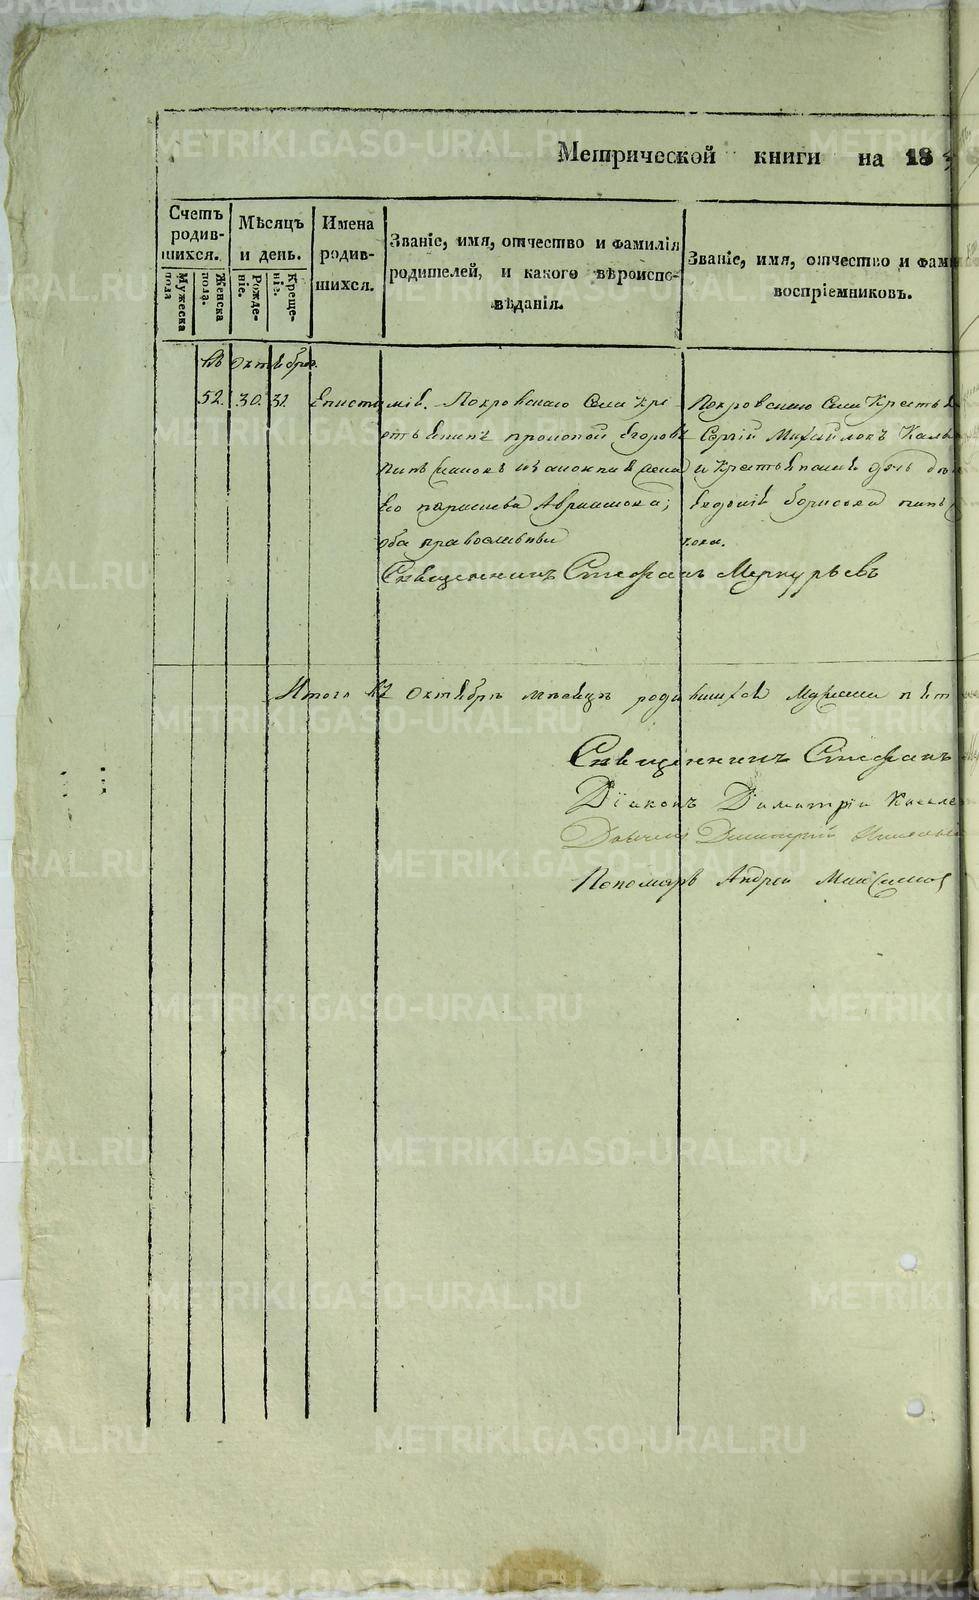 Метрической книги на 18
Счетъ родив-шихся.
Мужеска пола
Женска пола.
Мѣсяцъ и день.
Рожде-ніе.
Креще-ніе.
Имена родив-шихся.
Званіе, имя, отчество и фамилія
родителей, и какого вѣроиспо-
вѣданія.
Званіе, имя, отчество и фам
воспріемниковъ.
въ Октябрѣ.
52. 30. 31. Епистимія. Покровскаго Села Кре
стьянинъ Прокопій Егоровъ
жена
его Параскева Авраамова;
оба православные
Покровскаго Села Крестья
Сергій Михайловъ
и Крестьянина дочь
Евдокія Борисова
кова.
Священникъ Стефанъ Меркурьевъ
Итого въ Октябрѣ мѣсяцѣ родившихся Мужеска пят
Священникъ Стефанъ
Діаконъ Димитрій
Дьячекъ Димитрій
Пономарь Андрей Максимов
METRIKI.GASO-URAL.RU